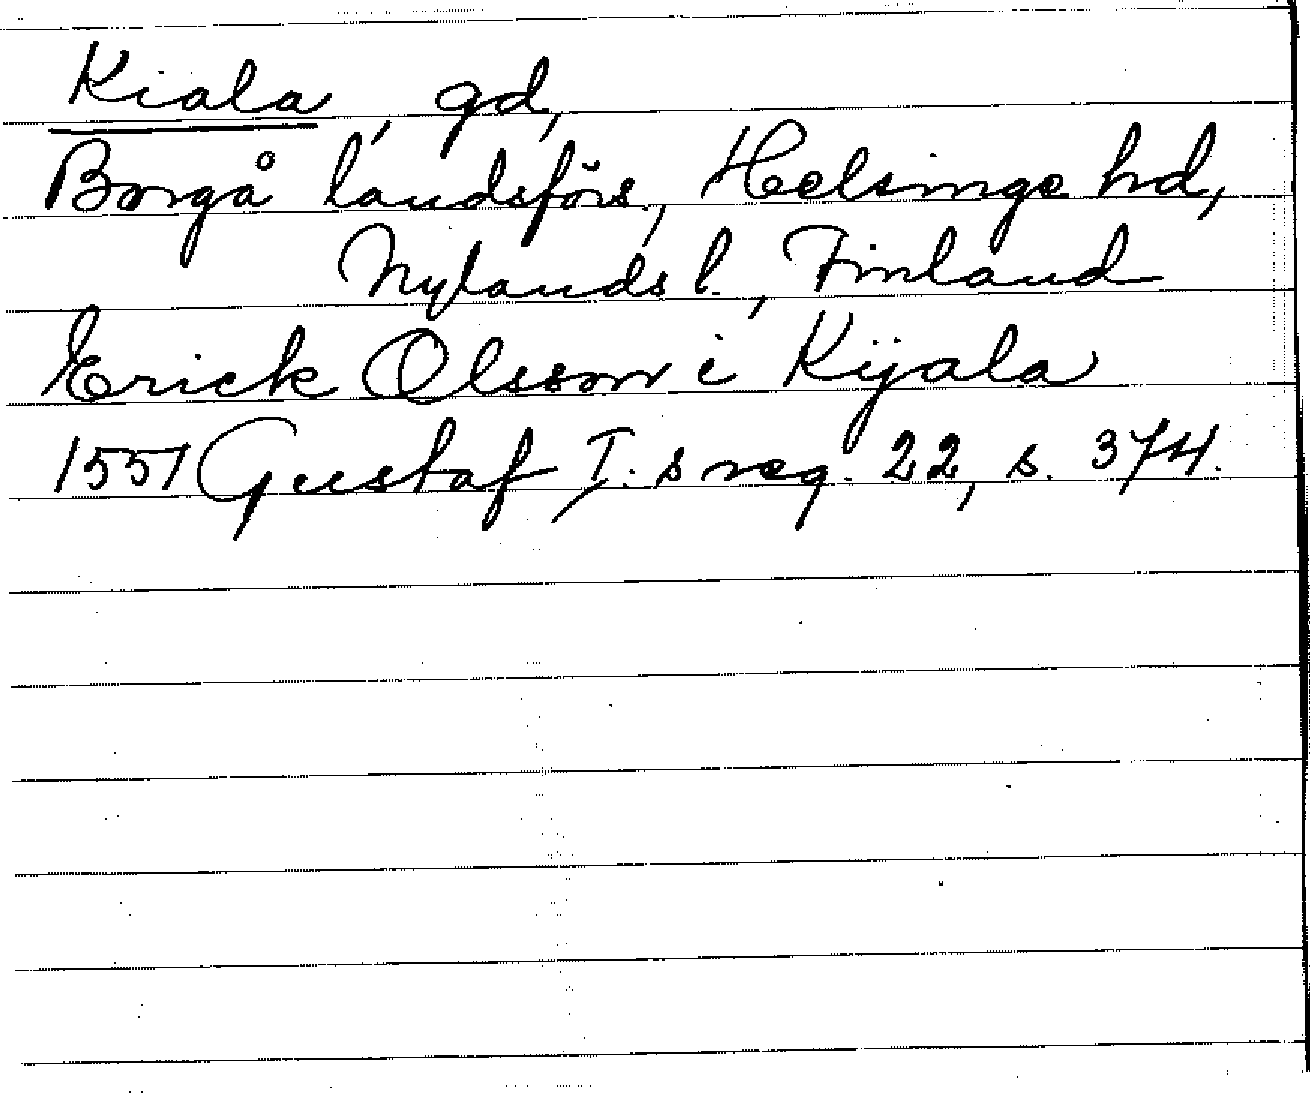 Kiala, gd,
Borgå landsförs., Helsinge hd,
Nylands l., Finland
Erick Olsson i Kijala
1551 Gustaf I:s reg. 22, s. 374.